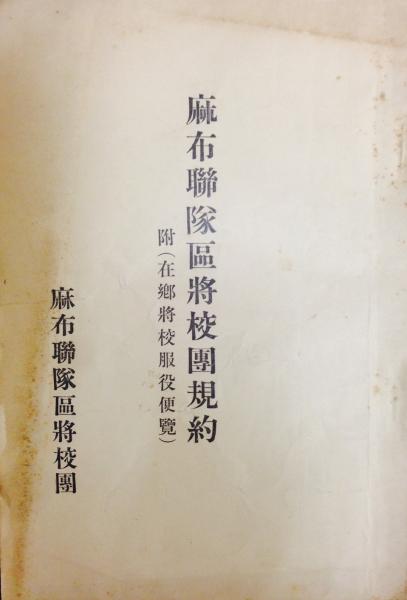 麻布聯隊區將校團規約
附(在鄕將校服役便覽)
麻布聯隊區將校團